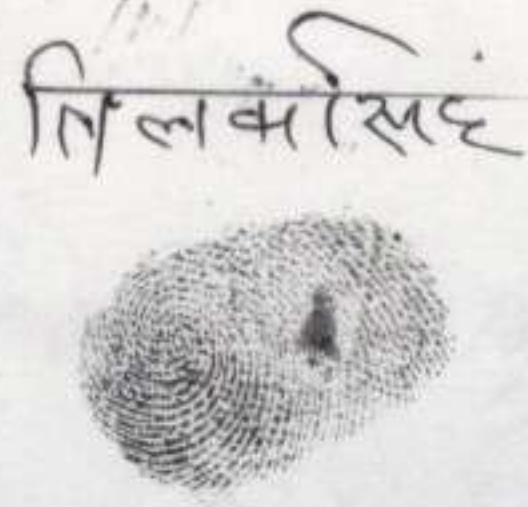 तिलकसिंह